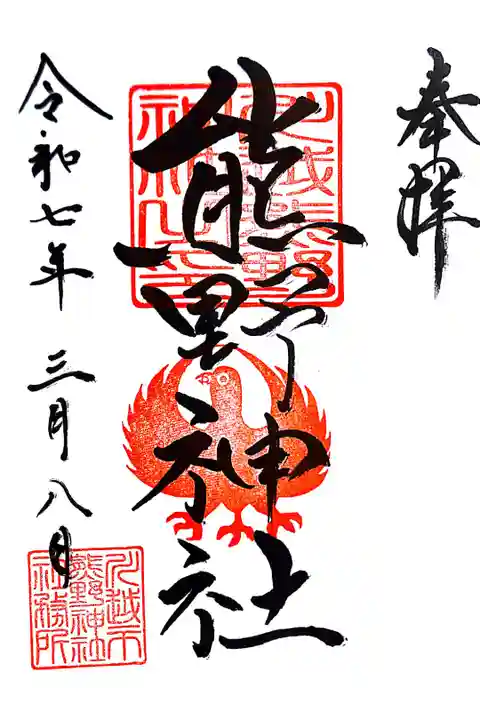 奉拝
川越熊野
神社之印
熊野神社
令和七年 三月八日
川越市
熊野神社
社務所